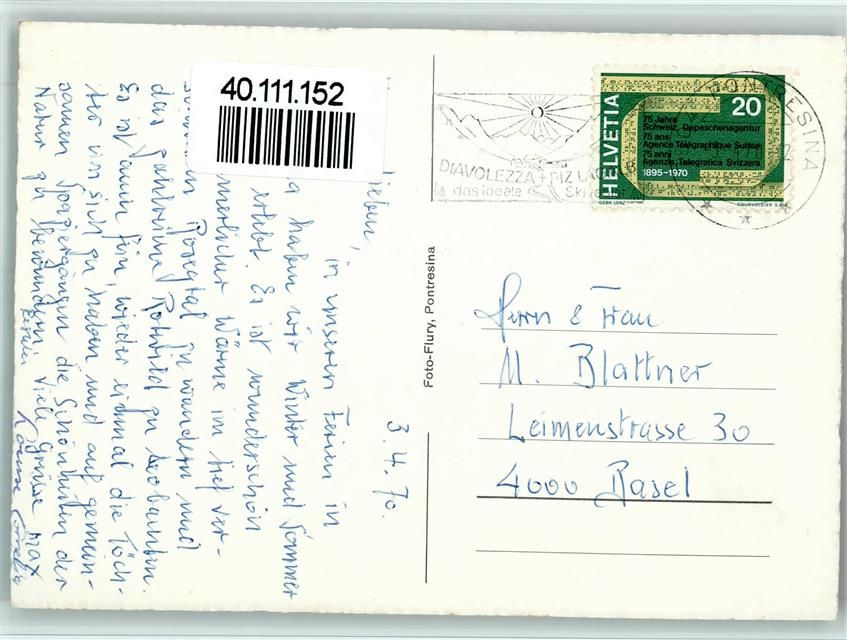 40.111.152
DIAVOLEZZA + PIZ LAG
das ideale Ski
PONTRESINA
HELVETIA
20
75 Jahre
Schweiz. Depeschenagentur
75 ans
Agence Télégraphique Suisse
75 anni
Agenzia Telegrafica Svizzera
1895-1970
GEBR. LENZ
COURVOISIER S.A.
3.4.70.
lieben,
in unseren Ferien in
haben wir Winter und Sommer
erlebt. Es ist wunderschön
Wärme im tief ver-
Rosegtal zu wandern und
das zahlreiche Rotwild zu beobachten.
Es ist auch fein, wieder einmal die Töch-
ter um sich zu haben und auf gemein-
samen Spaziergängen die Schönheiten der
Natur zu bewundern. Viele Grüsse Max
Foto-Flury, Pontresina
Herrn & Frau
M. Blattner
Leimenstrasse 30
4000 Basel